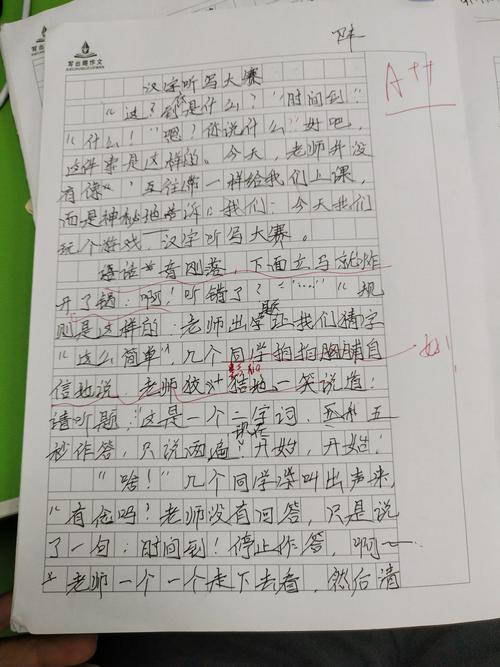 写出嗨作文
陈
汉字听写大赛
A++
“这？到底是什么？”“时间到！”
“什么！”“嗯？你说什么”好吧，
这件事是这样的。今天，老师并没
有像以往一样给我们上课，
而是神秘地告诉我们：今天我们
玩个游戏，汉字听写大赛。
话音刚落，下面立马就炸
开了锅：啊！听错了？“……”“规
则是这样的：老师出字题让我们猜字
“这么简单”，几个同学拍拍胸脯自
信地说，老师狡猾地一笑说道：
请听题：“这是一个二字词，五
秒作答，只说两遍！现在开始，开始！
“啥！”几个同学深叫出声来，
“有念吗？老师没有回答，只是说
了一句：时间到！停止作答，啊一
老师一个一个走下去看，然后清